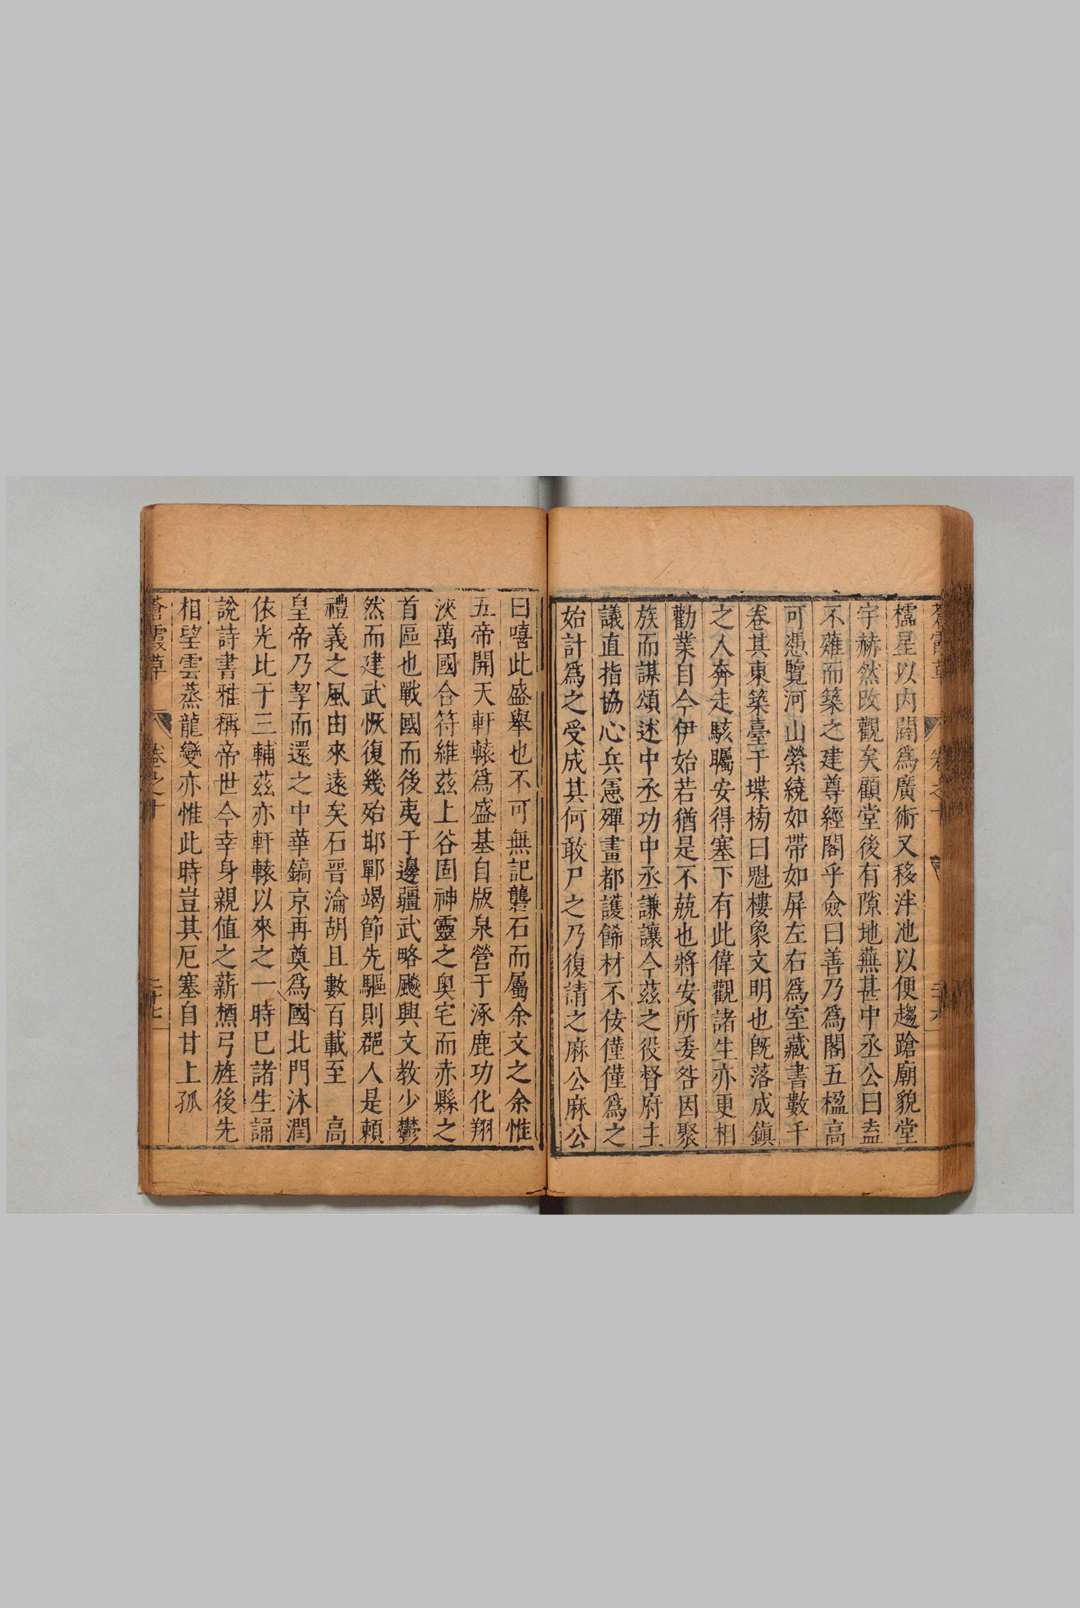 蒼霞草 卷之十
櫺星以內闢爲廣術又移泮池以便趨蹌廟貌堂
宇赫然改觀矣顧堂後有隙地蕪甚中丞公曰盍
不薙而築之建尊經閣乎僉曰善乃爲閣五楹高
可憑覽河山縈繞如帶如屏左右爲室藏書數千
卷其東築臺于堞榜曰魁樓象文明也旣落成鎭
之人奔走駭矚安得塞下有此偉觀諸生亦更相
勸業自今伊始若猶是不兢也將安所委咎因聚
族而謀頌述中丞功中丞謙讓今茲之役督府主
議直指協心兵憲殫畫都護餙材不佞僅僅爲之
始計爲之受成其何敢尸之乃復請之麻公麻公
曰嘻此盛舉也不可無記礱石而屬余文之余惟
五帝開天軒轅爲盛基自版泉營于涿鹿功化翔
浹萬國合符維茲上谷固神靈之奥宅而赤縣之
首區也戰國而後夷于邊疆武略飈興文教少鬱
然而建武恢復幾殆邯鄲竭節先驅則郡人是賴
禮義之風由來遠矣石晉淪胡且數百載至 高
皇帝乃挈而還之中華鎬京再奠爲國北門沐潤
依光比于三輔茲亦軒轅以來之一時已諸生誦
說詩書雅稱帝世今幸身親值之薪槱弓旌後先
相望雲蒸龍變亦惟此時豈其厄塞自甘上孤
蒼霞草 卷之十 二十七